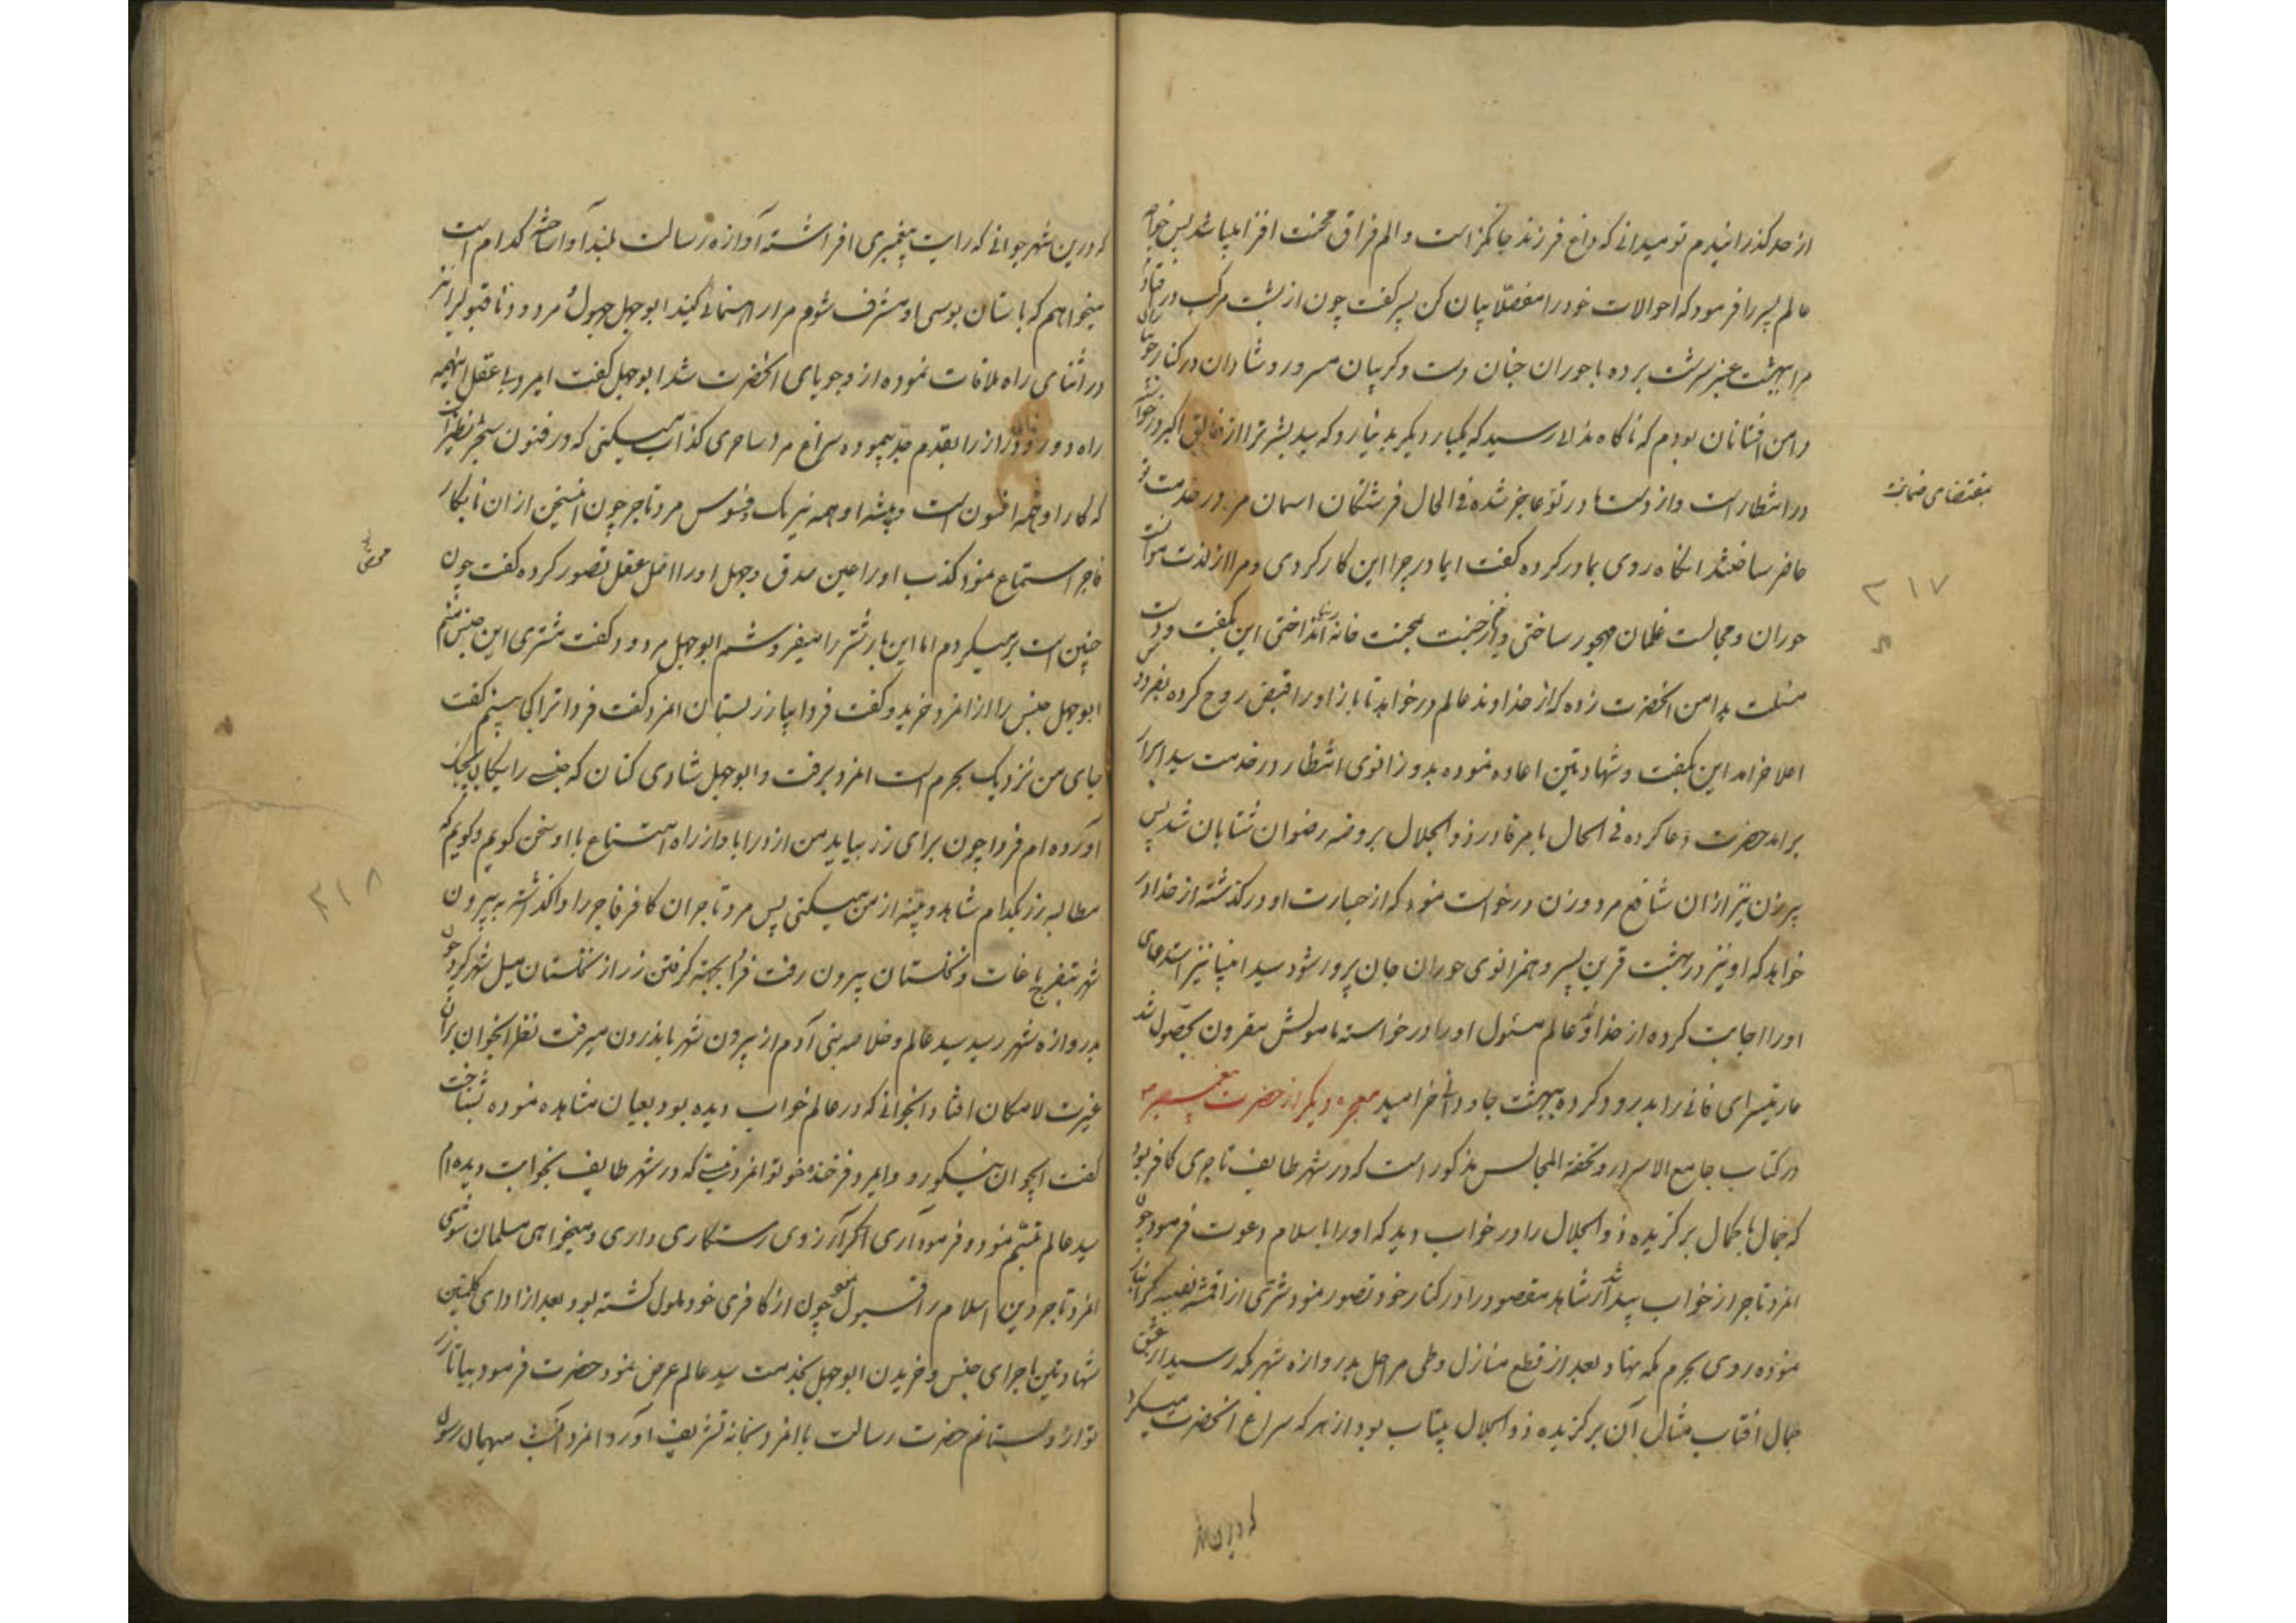 از حد گذرانیدم تو میدانی که داغ فرزند جانگزاست و الم فراق محنت افزا میباشد پس خواجه
عالم پسر را فرمود که احوالات خود را مفصلا بیان کن پسر گفت چون از پشت مرکب در
مرا ببهشت عنبر سرشت برده با حوران جنان دست و گریبان مسرور و شادان در کنار
دامن افشانان بودم که ناگاه ندا رسید که یکبار دیگر بدنیا رو که سید بشر ترا از خالق اکبر
در انتظار است و از دست مادر تو عاجز شده فی الحال فرشتگان اسمان مرا در خدمت تو
بمقتضای
حاضر ساختند انگاه روی بمادر کرده گفت ایمادر چرا این کار کردی و مرا از لذت
۲۱۷
حوران و مجالست غلمان مهجور ساختی و بمحنت خانه انداختی این بگفت و دست
مسئلت بدامن انحضرت زده که از خداوند عالم درخواهد تا باز او را قبض روح کرده بفردوس
اعلا خرامد این بگفت و شهادتین اعاده نموده بدو زانوی انتظار در خدمت سید ابرار
برامد حضرت دعا کرده فی الحال بامر قادر ذوالجلال بروضه رضوان شتابان شد پس
پیرزن نیز ازان شافع مرد و زن درخواست نمود که از جسارت او درگذشته از خدا در
خواهد که او نیز در بهشت قرین پسر و همزانوی حوران جان پرور شود سید انبیا نیز استدعای
او را اجابت کرده از خداوند عالم مسئول او را درخواسته مامولش مقرون بحصول شد
عاریتسرای فانی را بدرود کرده ببهشت جاودانی خرامید معجزه دیگر از حضرت پیغمبر
در کتاب جامع الاسرار و تحفة المجالس مذکور است که در شهر طایف تاجری کافر بود
که جمال با کمال برگزیده ذوالجلال را در خواب دید که او را باسلام دعوت فرمود چون
انمرد تاجر از خواب بیدار شد شاهد مقصود را در کنار خود تصور نمود شتری از اقمشه نفیسه گرانبار
نموده روی بحرم مکه نهاد بعد از قطع منازل و طی مراحل بدروازه شهر مکه رسید از عشق
جمال افتاب مثال آن برگزیده ذوالجلال بیتاب بود از هر که سراغ انحضرت میکرد
که درین شهر
که درین شهر جوانی که رایت پیغمبری افراشته آوازه رسالت بلند آواز ساخته کدام است
میخواهم که باستان بوسی او مشرف شوم مرا رهنمائی کنید ابوجهل جهول مردود نا قبول را نیز
در اثنای راه ملاقات نموده از وجویای انحضرت شد ابوجهل گفت ایمرد با عقل اینهمه
راه دور و دراز را بقدم جد پیموده سراغ مرد ساحری کذاب میکنی که در فنون سحر بینظیر است
که کار او همه افسون است و پیشه او همه نیرنگ و فسوس مرد تاجر چون این سخن ازان نابکار
فاجر استماع نمود کذب او را عین صدق و جهل او را اصل عقل تصور کرده گفت چون
محض
چنین است برمیگردم اما این بار شتر را میفروشم ابوجهل مردود گفت مشتری این جنس منم
ابوجهل جنس را از انمرد خرید و گفت فردا بیا زر بستان انمرد گفت فردا ترا کی بینم گفت
جای من نزدیک بحرم است انمرد برفت و ابوجهل شادی کنان که جنسی رایگان بچنگ
آورده ام فردا چون برای زر بیاید من از در ابا و از راه امتناع با او سخن گویم و گویم که
۲۱۸
مطالبه زر بکدام شاهد و بینه از من میکنی پس مرد تاجر ان کافر فاجر را واگذاشته به بیرون
شهر بتفرج باغات و نخلستان بیرون رفت فردا بجهة گرفتن زر از نخلستان میل شهر کرد چون
بدروازه شهر رسید سید عالم و خلاصه بنی آدم از بیرون شهر باندرون میرفت نظر انجوان بران
غیرت لامکان افتاد انجوانی که در عالم خواب دیده بود بعیان مشاهده نموده بشناخت
گفت ایجوان نیکو رو و ایمرد فرخنده خو تو انمرد نیستی که در شهر طایف بخوابت دیده ام
سید عالم تبسم نمود و فرمود آری اگر آرزوی رستگاری داری و میخواهی مسلمان شوی
انمرد تاجر دین اسلام را قبول نمود چون از کافری خود ملول گشته بود بعد از ادای کلمتین
شهادتین ماجرای جنس و خریدن ابوجهل بخدمت سید عالم عرض نمود حضرت فرمود بیا تا زر
تو ازو بستانم حضرت رسالت با انمرد بخانه تشریف آورد انمرد انشب میهمان رسول